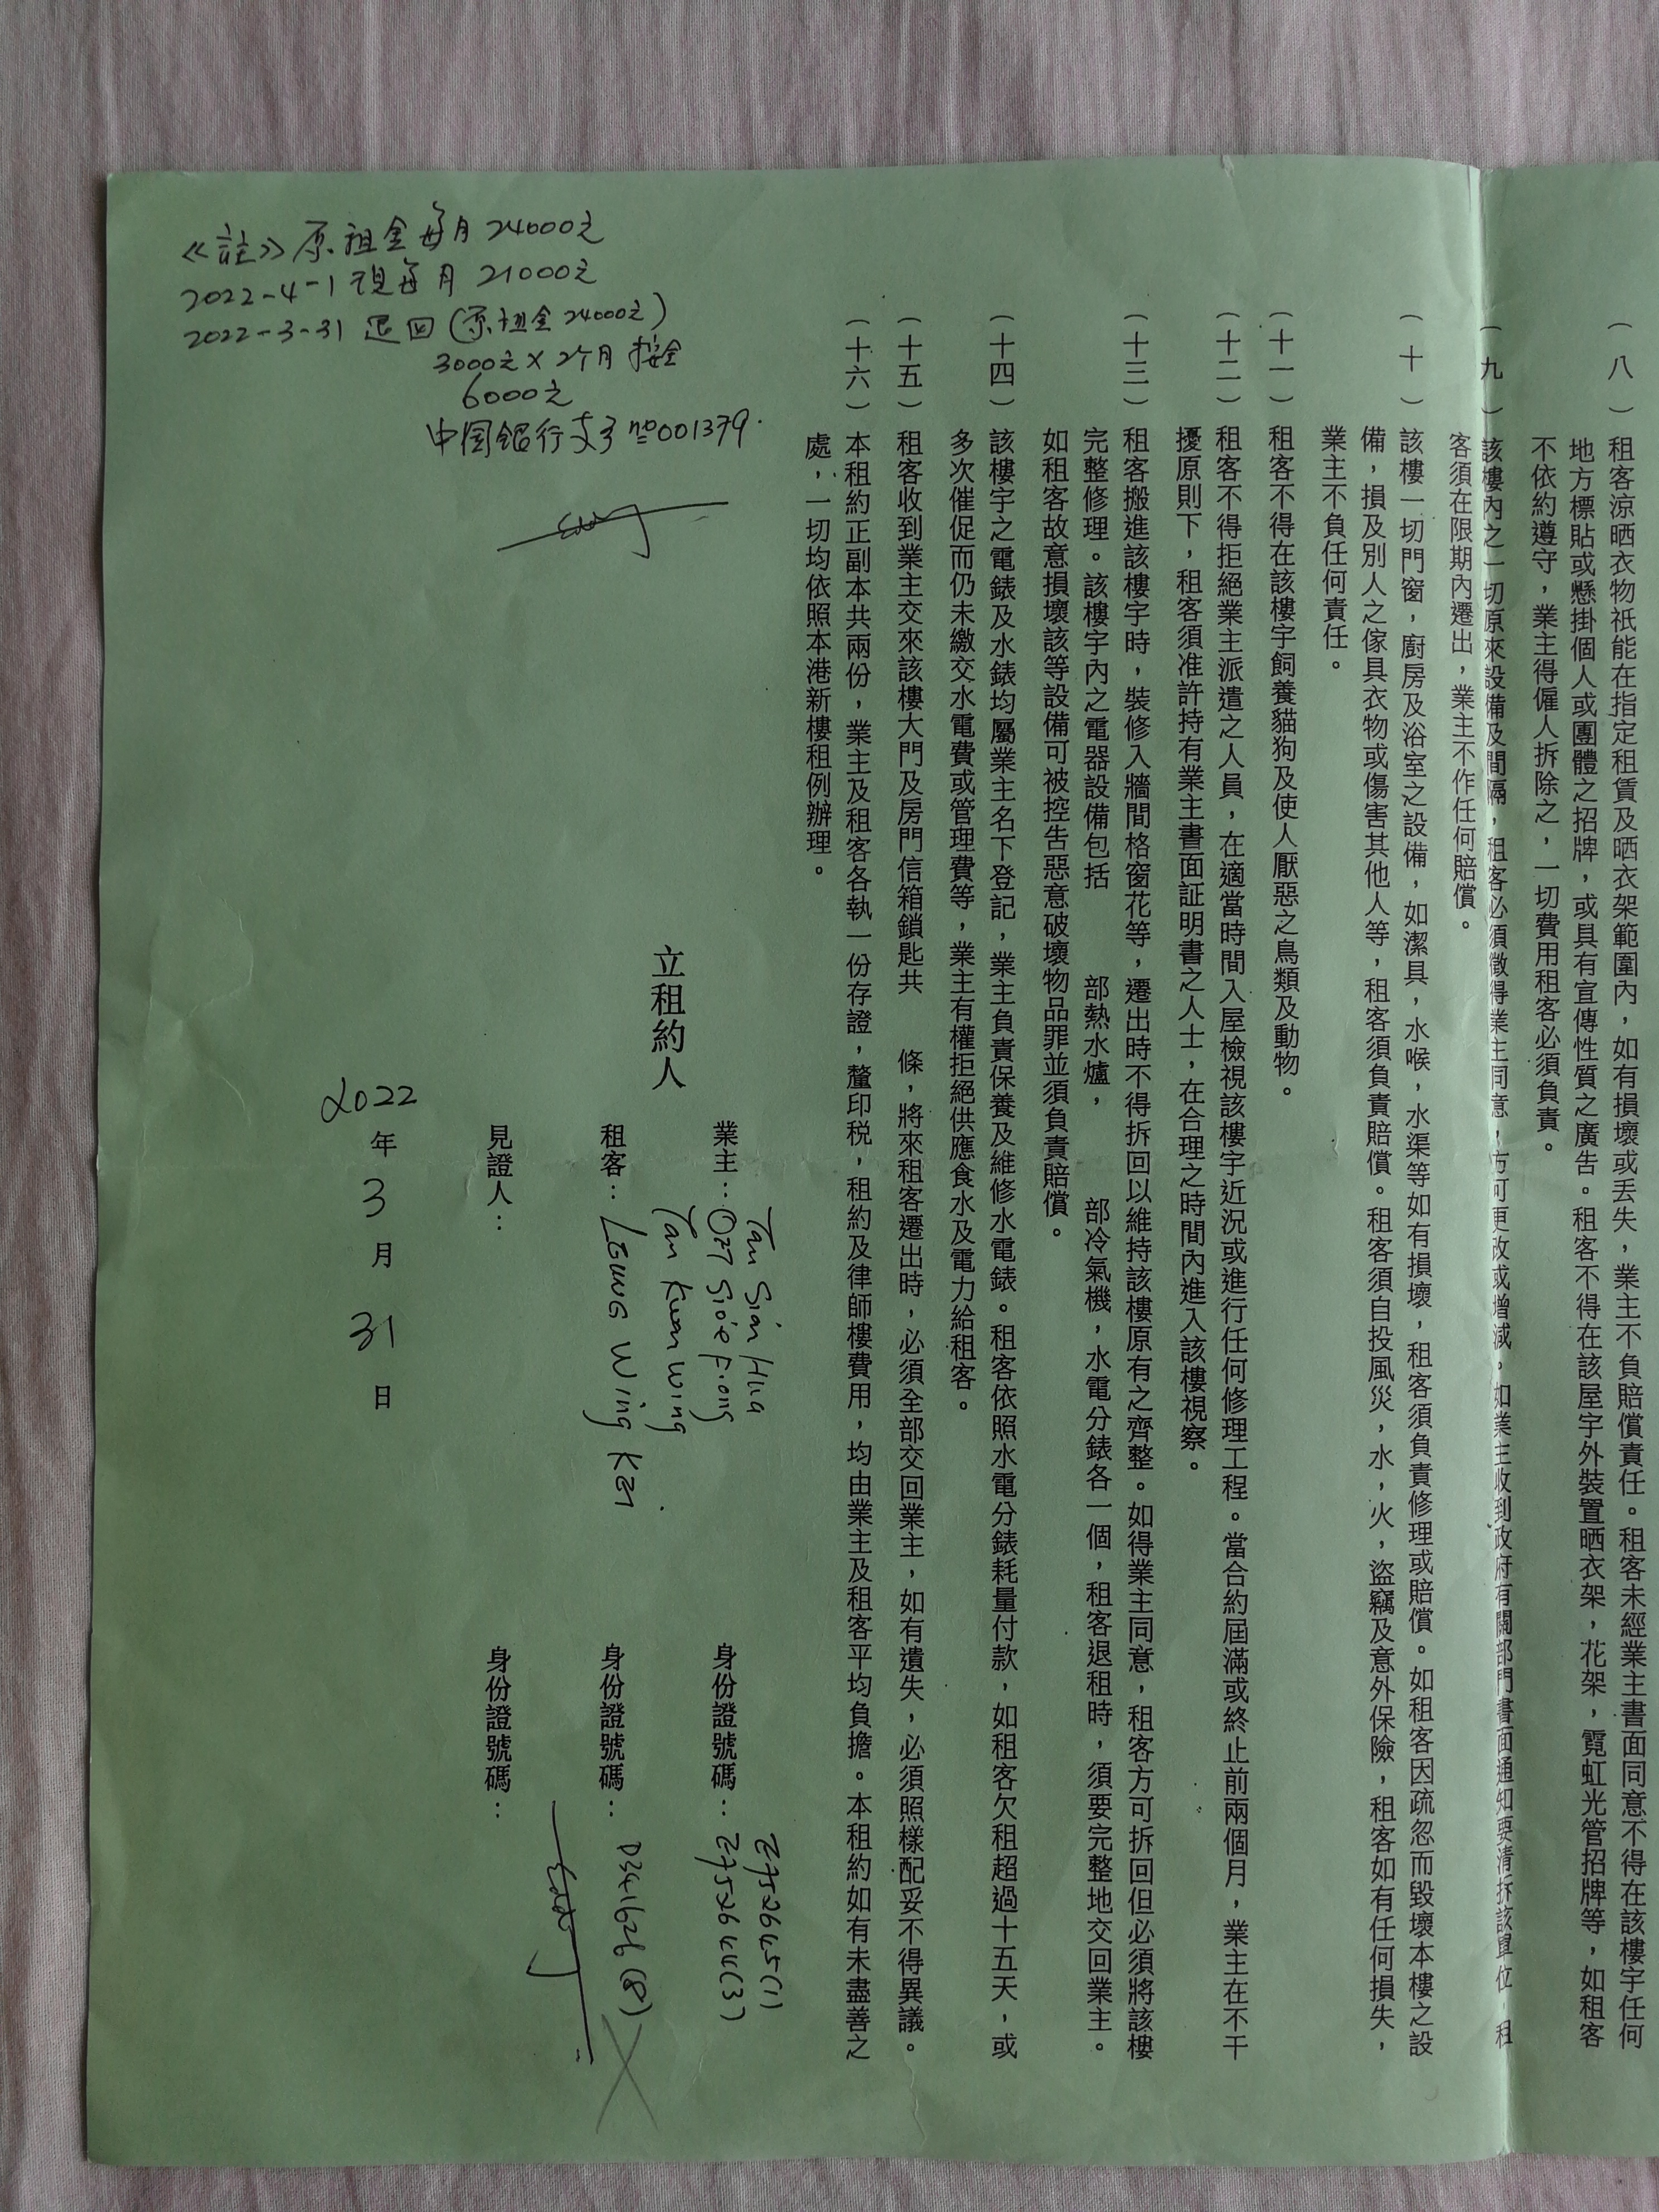 （八）租客涼晒衣物祇能在指定租賃及晒衣架範圍內，如有損壞或丟失，業主不負賠償責任。租客未經業主書面同意不得在該樓宇任何
地方標貼或懸掛個人或團體之招牌，或具有宣傳性質之廣告。租客不得在該屋宇外裝置晒衣架，花架，霓虹光管招牌等，如租客
不依約遵守，業主得僱人拆除之，一切費用租客必須負責。
（九）該樓內之一切原來設備及間隔，租客必須徵得業主同意，方可更改或增減。如業主收到政府有關部門書面通知要清拆該單位，租
客須在限期內遷出，業主不作任何賠償。
（十）該樓一切門窗，廚房及浴室之設備，如潔具，水喉，水渠等如有損壞，租客須負責修理或賠償。如租客因疏忽而毀壞本樓之設
備，損及別人之傢具衣物或傷害其他人等，租客須負責賠償。租客須自投風災，水，火，盜竊及意外保險，租客如有任何損失，
業主不負任何責任。
（十一）租客不得在該樓宇飼養貓狗及使人厭惡之鳥類及動物。
（十二）租客不得拒絕業主派遣之人員，在適當時間入屋檢視該樓宇近況或進行任何修理工程。當合約屆滿或終止前兩個月，業主在不干
擾原則下，租客須准許持有業主書面証明書之人士，在合理之時間內進入該樓視察。
（十三）租客搬進該樓宇時，裝修入牆間格窗花等，遷出時不得拆回以維持該樓原有之齊整。如得業主同意，租客方可拆回但必須將該樓
完整修理。該樓宇內之電器設備包括　　部熱水爐，　　部冷氣機，水電分錶各一個，租客退租時，須要完整地交回業主。
如租客故意損壞該等設備可被控告惡意破壞物品罪並須負責賠償。
（十四）該樓宇之電錶及水錶均屬業主名下登記，業主負責保養及維修水電錶。租客依照水電分錶耗量付款，如租客欠租超過十五天，或
多次催促而仍未繳交水電費或管理費等，業主有權拒絕供應食水及電力給租客。
（十五）租客收到業主交來該樓大門及房門信箱鎖匙共　　條，將來租客遷出時，必須全部交回業主，如有遺失，必須照樣配妥不得異議。
（十六）本租約正副本共兩份，業主及租客各執一份存證，釐印税，租約及律師樓費用，均由業主及租客平均負擔。本租約如有未盡善之
處，一切均依照本港新樓租例辦理。
立租約人
業主：Tan Sian Hua
Oey Siok Fiong
Tan Kwan Wing
身份證號碼：Z752645(1)
Z752644(3)
租客：Leung Wing Kei
身份證號碼：D341626(8)
見證人：
身份證號碼：
2022年3月31日
《註》原租金每月24000元
2022-4-1現每月21000元
2022-3-31退回(原租金24000元)
3000元×2个月按金
6000元
中国銀行支票№001379.